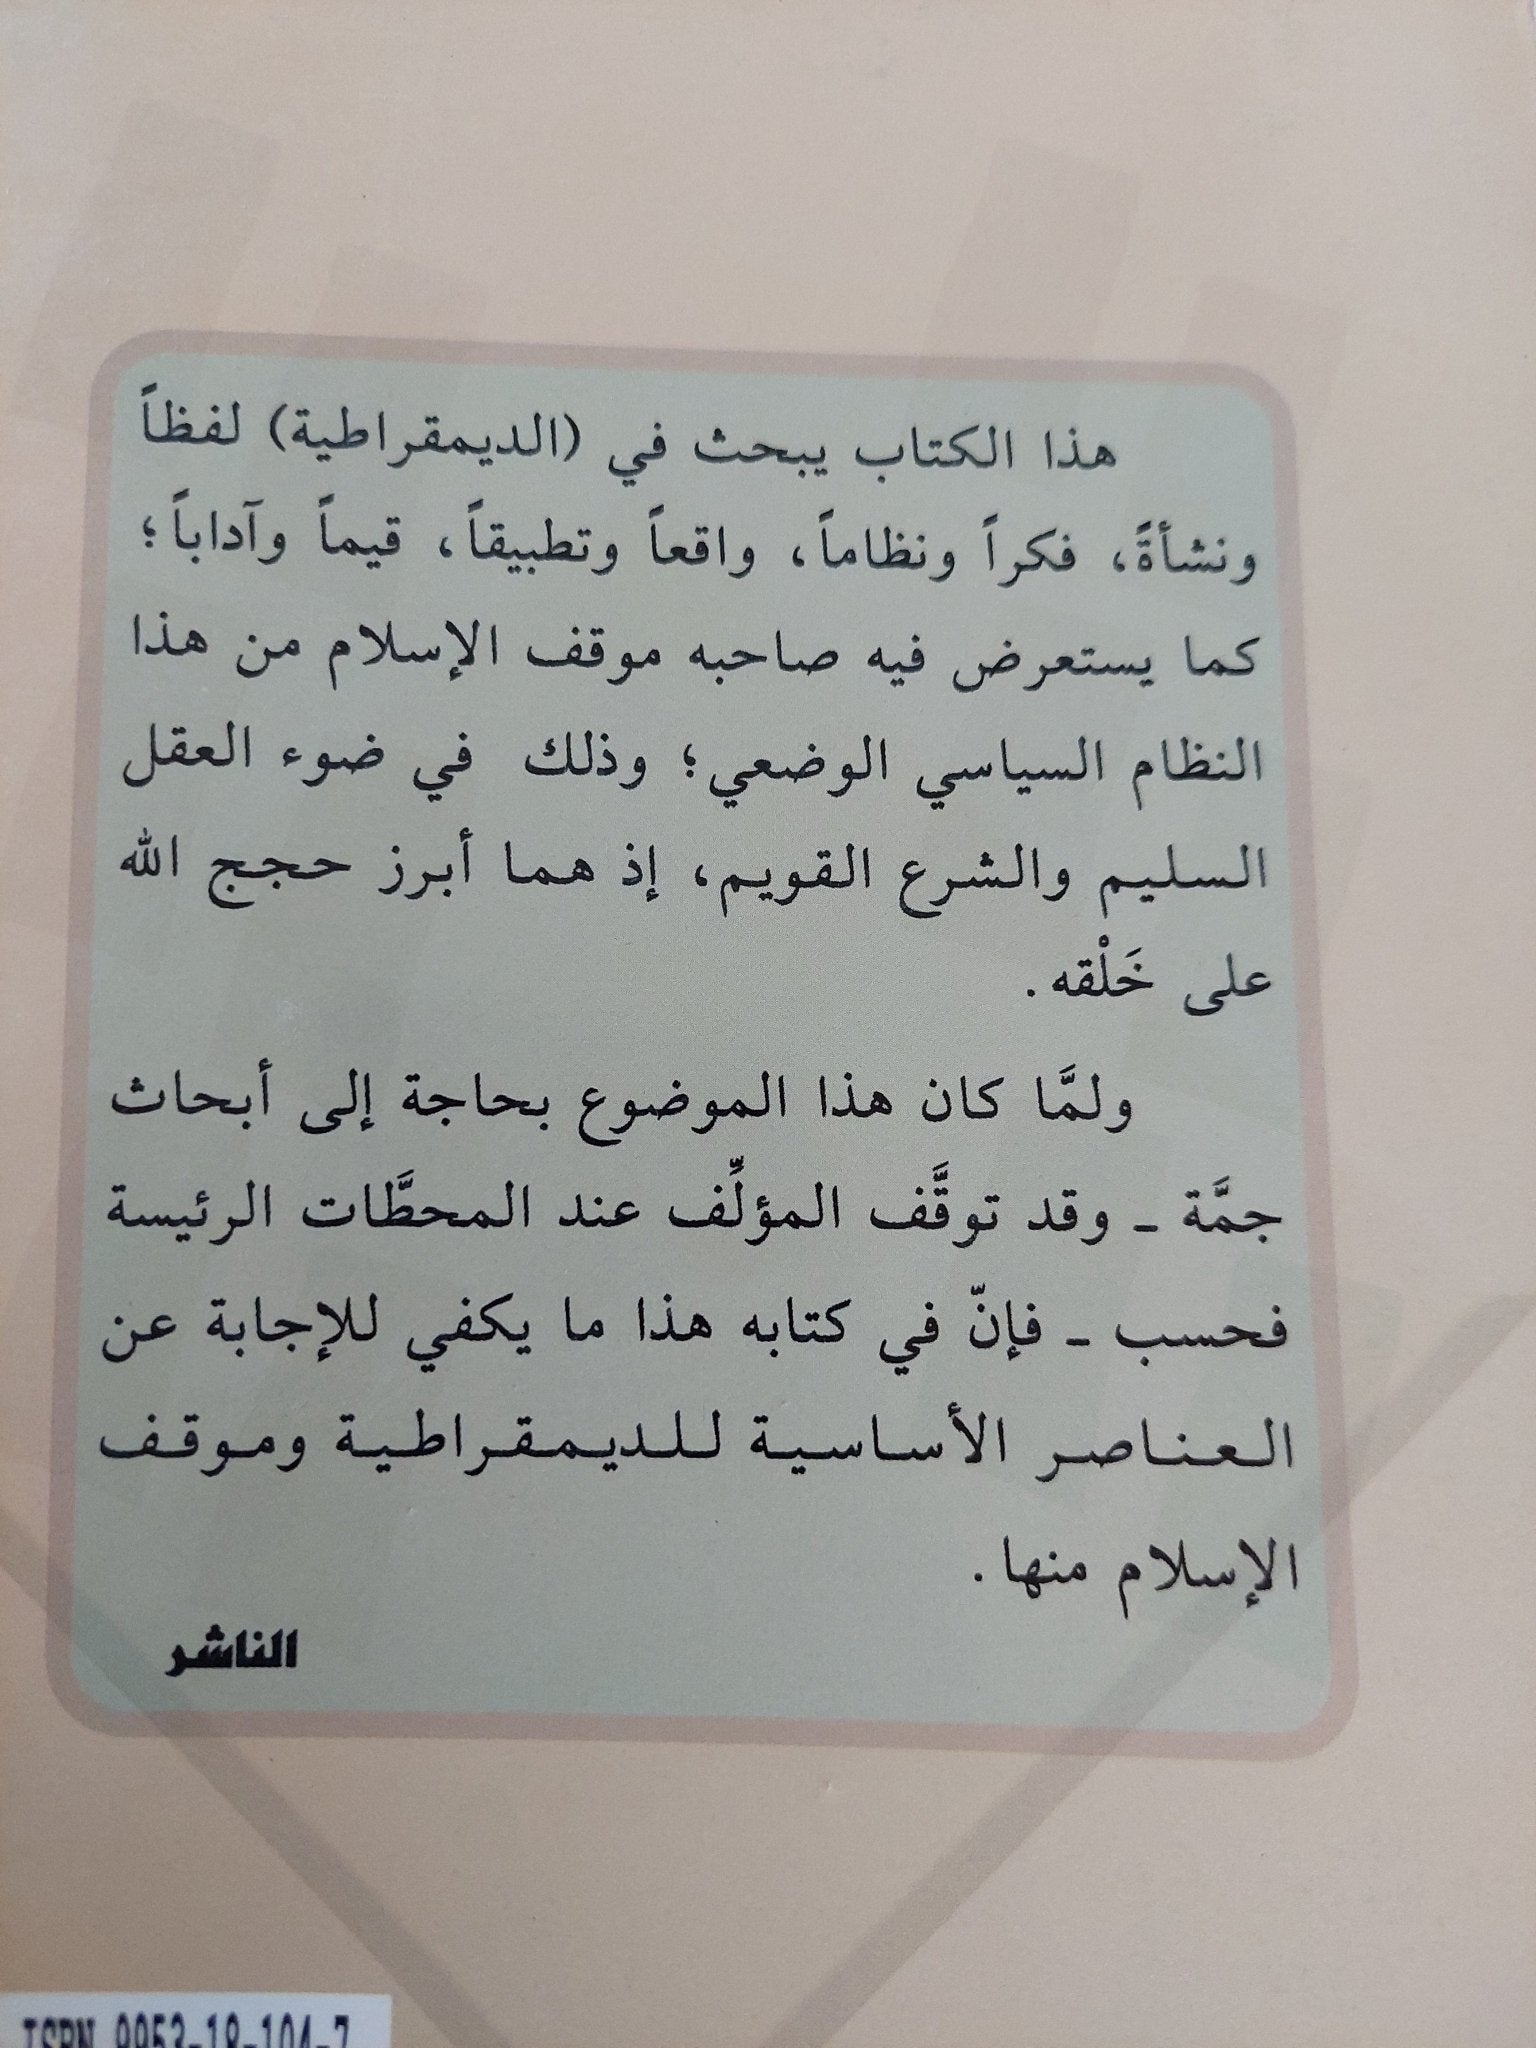 هذا الكتاب يبحث في (الديمقراطية) لفظاً
ونشأةً، فكراً ونظاماً، واقعاً وتطبيقاً، قيماً وآداباً؛
كما يستعرض فيه صاحبه موقف الإسلام من هذا
النظام السياسي الوضعي؛ وذلك في ضوء العقل
السليم والشرع القويم، إذ هما أبرز حجج الله
على خَلْقه.
ولمَّا كان هذا الموضوع بحاجة إلى أبحاث
جمَّة ـ وقد توقَّف المؤلِّف عند المحطَّات الرئيسة
فحسب ـ فإنّ في كتابه هذا ما يكفي للإجابة عن
العناصر الأساسية للديمقراطية وموقف
الإسلام منها.
الناشر
ISBN 9953-18-104-7